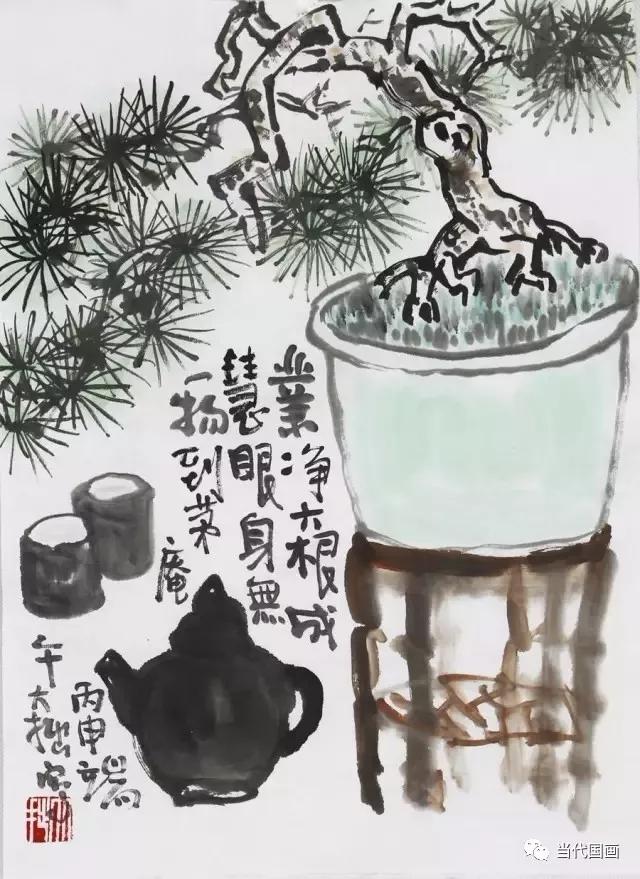 業净六根成
慧眼身無
一物到茅
庵
丙申端
午大拙
当代国画